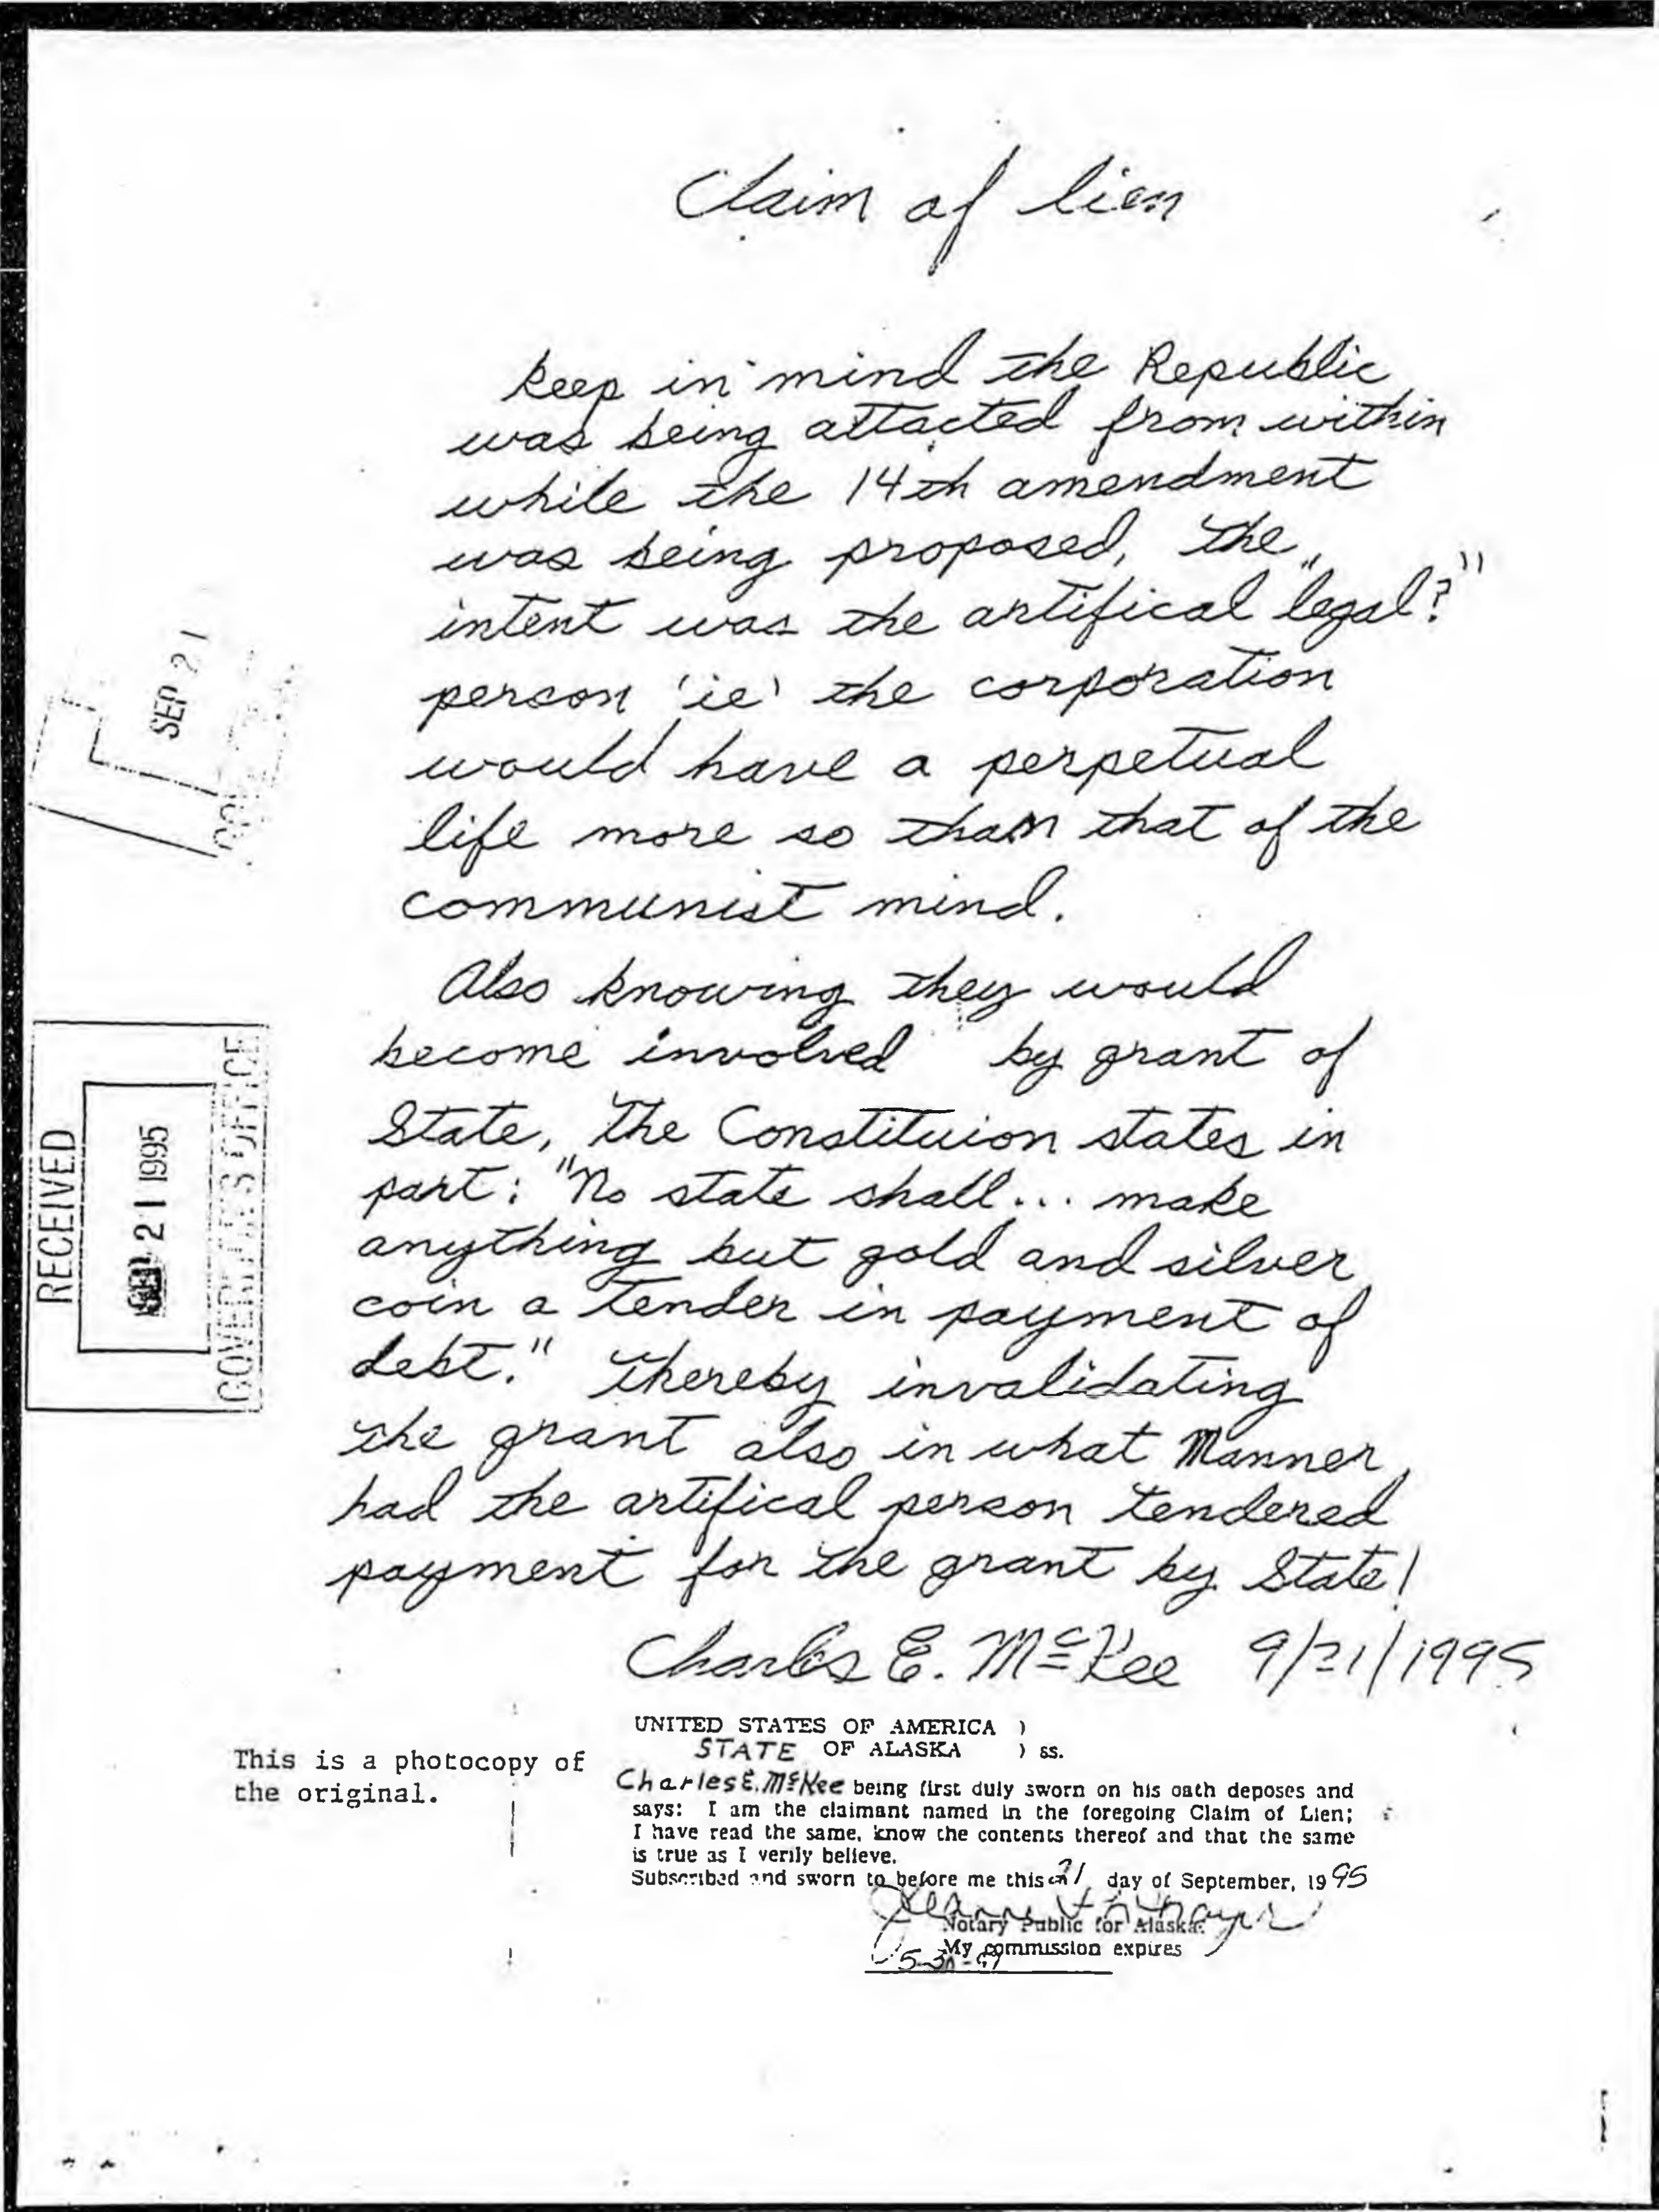 Claim of lien
keep in mind the Republic
was being attacted from within
while the 14th amendment
was being proposed, the
intent was the artifical "legal?"
person 'ie' the corporation
would have a perpetual
life more so than that of the
communist mind.
Also knowing they would
become involved by grant of
State, The Constituion states in
part: "No state shall... make
anything but gold and silver
coin a Tender in payment of
debt." Thereby invalidating
the grant also in what Manner
had the artifical person tendered
payment for the grant by State!
Charles E. McKee 9/21/1995
SEP 21
RECEIVED
21 1995
GOVERNOR'S OFFICE
This is a photocopy of
the original.
UNITED STATES OF AMERICA )
STATE OF ALASKA ) ss.
Charles E. McKee being first duly sworn on his oath deposes and
says: I am the claimant named in the foregoing Claim of Lien;
I have read the same, know the contents thereof and that the same
is true as I verily believe.
Subscribed and sworn to before me this 21 day of September, 1995
Notary Public for Alaska
My commission expires